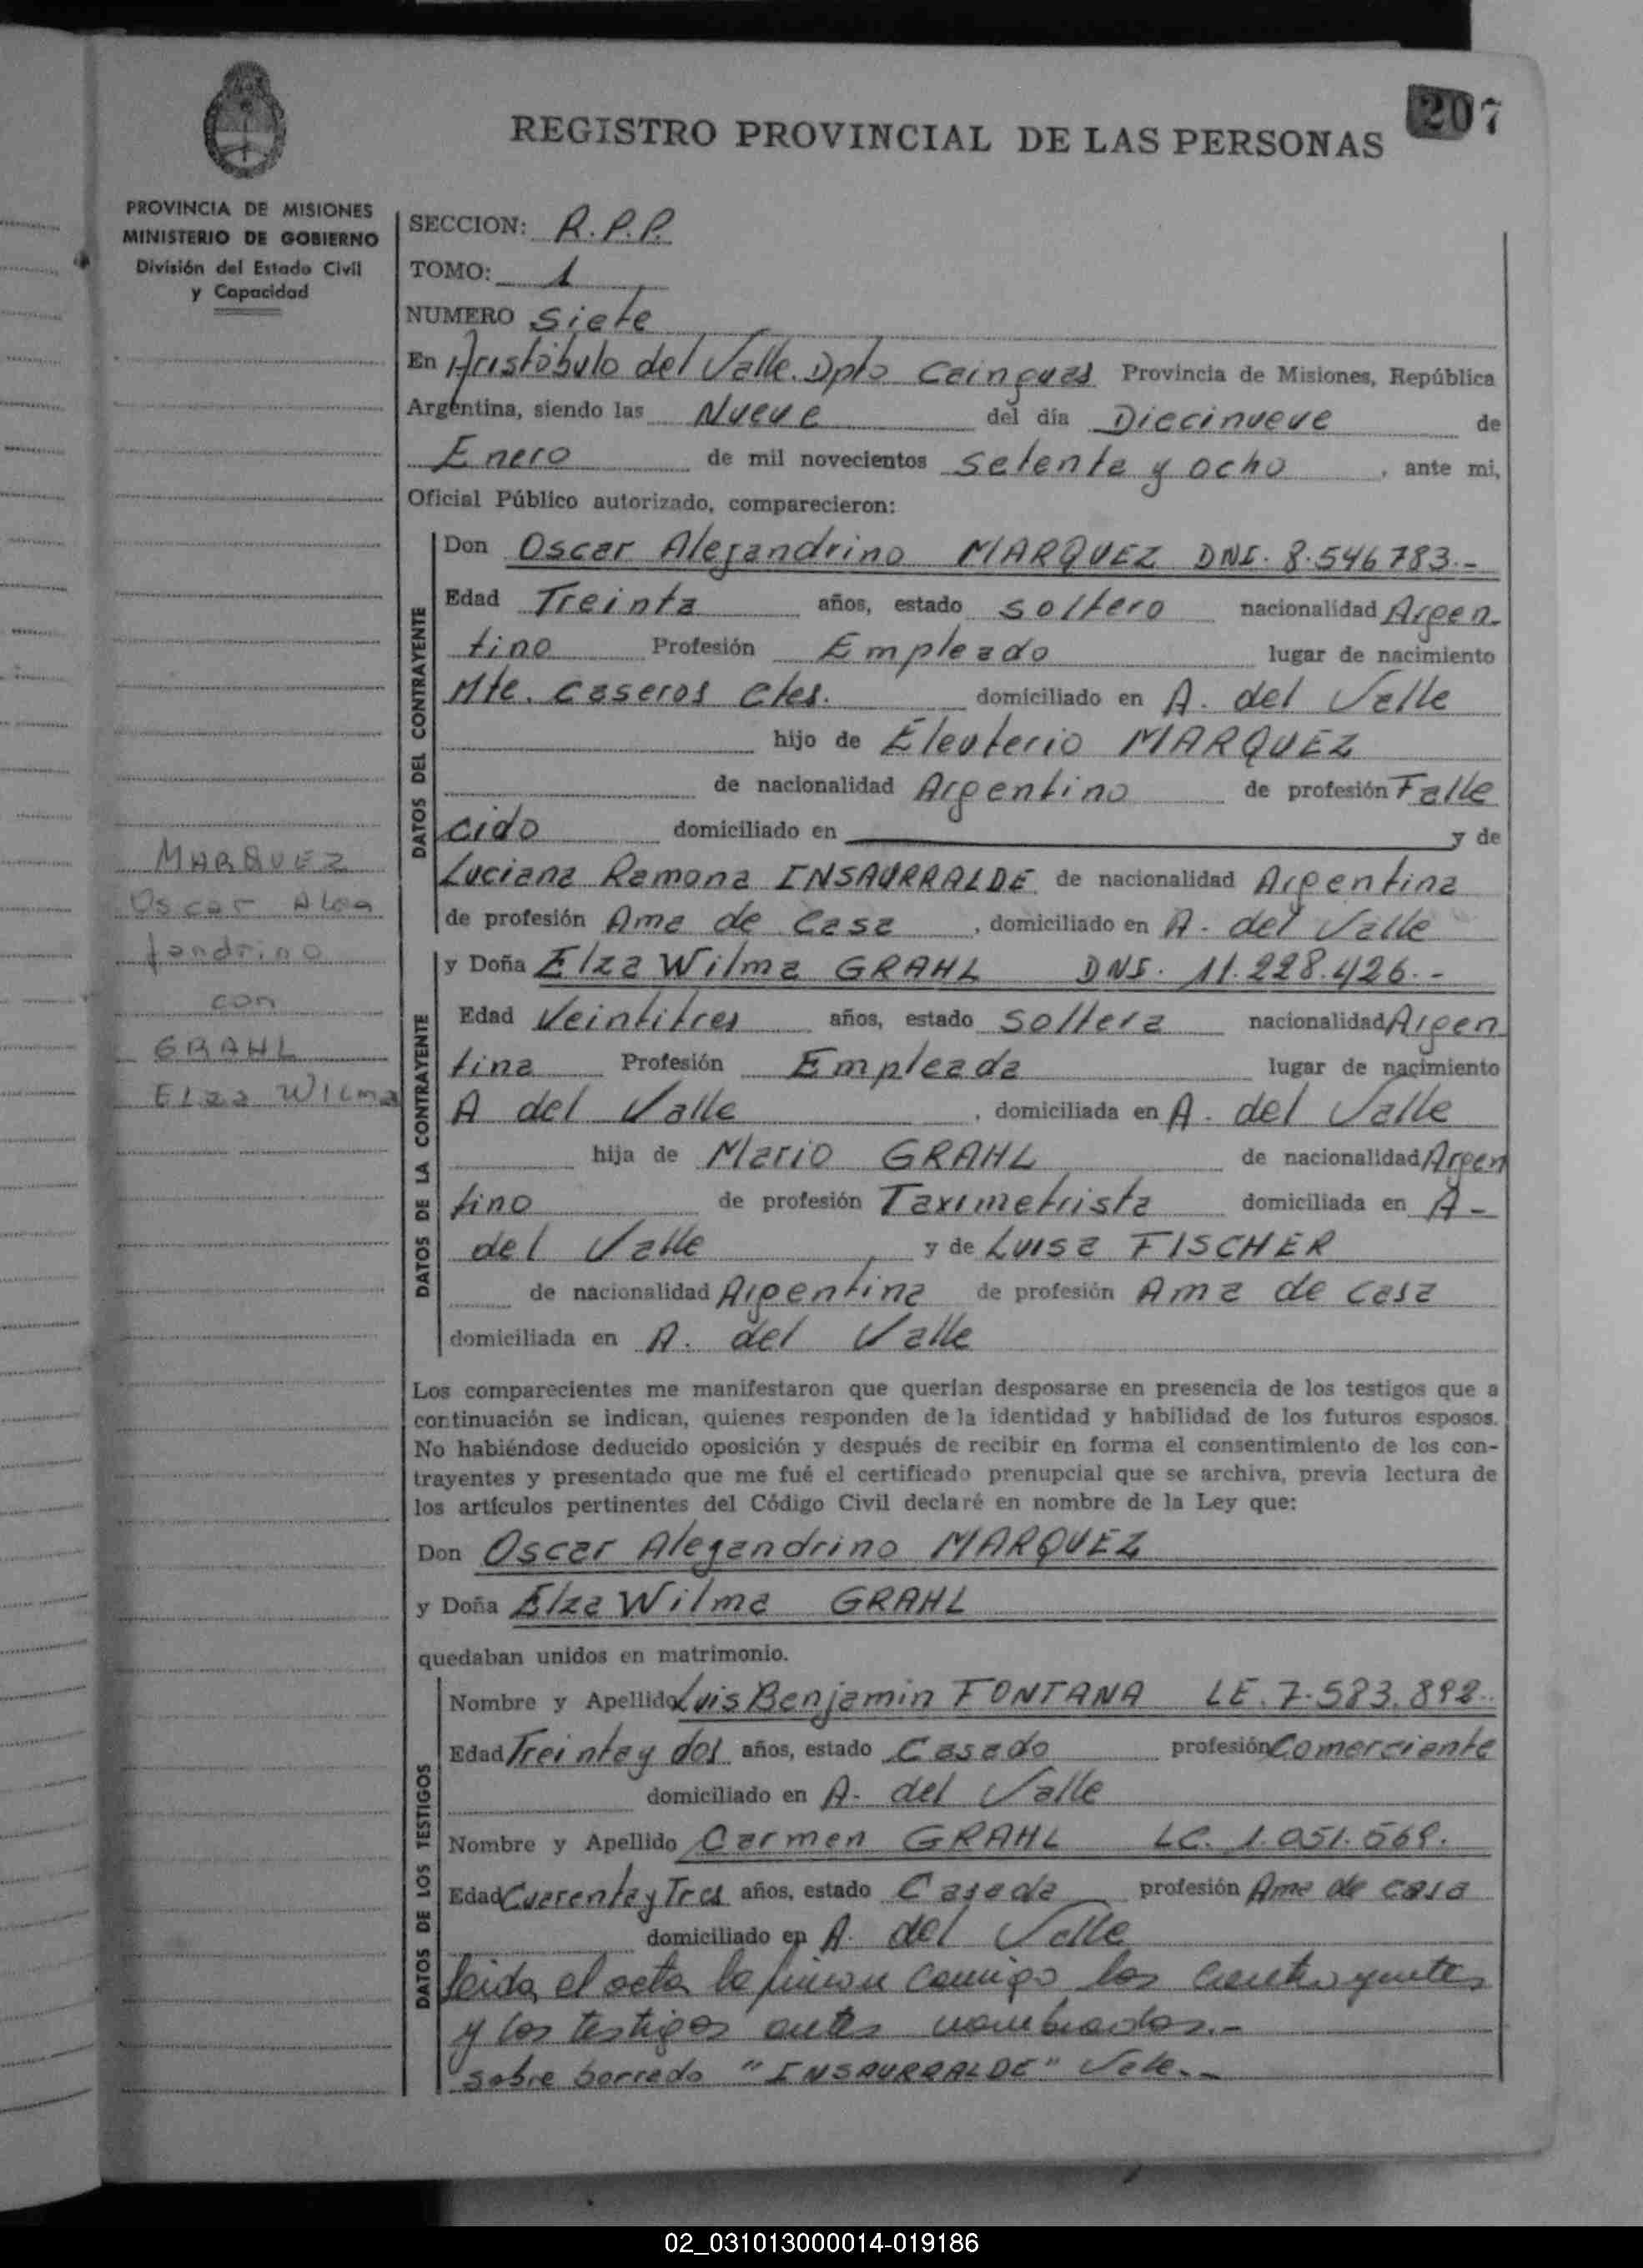 207
REGISTRO PROVINCIAL DE LAS PERSONAS
PROVINCIA DE MISIONES
MINISTERIO DE GOBIERNO
División del Estado Civil
y Capacidad
SECCION: R.P.P.
TOMO: 1
NUMERO Siete
En Aristóbulo del Valle. Dpto Cainguas Provincia de Misiones, República
Argentina, siendo las Nueve del día Diecinueve de
Enero de mil novecientos setenta y ocho, ante mi,
Oficial Público autorizado, comparecieron:
DATOS DEL CONTRAYENTE
Don Oscar Alejandrino MARQUEZ DNI. 8.546783.-
Edad Treinta años, estado soltero nacionalidad Argen
tino Profesión Empleado lugar de nacimiento
Mte. Caseros Ctes. domiciliado en A. del Valle
hijo de Eleuterio MARQUEZ
de nacionalidad Argentino de profesión Falle
cido domiciliado en y de
Luciana Ramona INSAURRALDE de nacionalidad Argentina
de profesión Ama de Casa, domiciliado en A. del Valle
MARQUEZ
Oscar Ale
jandrino
con
GRAHL
Elza Wilma
DATOS DE LA CONTRAYENTE
y Doña Elza Wilma GRAHL DNI. 11.228.426.-
Edad Veintitres años, estado soltera nacionalidad Argen
tina Profesión Empleada lugar de nacimiento
A del Valle, domiciliada en A. del Valle
hija de Mario GRAHL de nacionalidad Argen
tino de profesión Taximetrista domiciliada en A-
del Valle y de Luisa FISCHER
de nacionalidad Argentina de profesión Ama de casa
domiciliada en A. del Valle
Los comparecientes me manifestaron que querían desposarse en presencia de los testigos que a
continuación se indican, quienes responden de la identidad y habilidad de los futuros esposos.
No habiéndose deducido oposición y después de recibir en forma el consentimiento de los con-
trayentes y presentado que me fué el certificado prenupcial que se archiva, previa lectura de
los artículos pertinentes del Código Civil declaré en nombre de la Ley que:
Don Oscar Alejandrino MARQUEZ
y Doña Elza Wilma GRAHL
quedaban unidos en matrimonio.
DATOS DE LOS TESTIGOS
Nombre y Apellido Luis Benjamin FONTANA LE. 7.583.892.
Edad Treinta y dos años, estado Casado profesión Comerciante
domiciliado en A. del Valle
Nombre y Apellido Carmen GRAHL LC. 1.051.569.
Edad Cuarenta y Tres años, estado Casada profesión Ama de casa
domiciliado en A. del Valle
leida el acta la firman conmigo los contrayentes
y los testigos antes nombrados.-
sobre borrado "INSAURRALDE" Vale.-
02_031013000014-019186